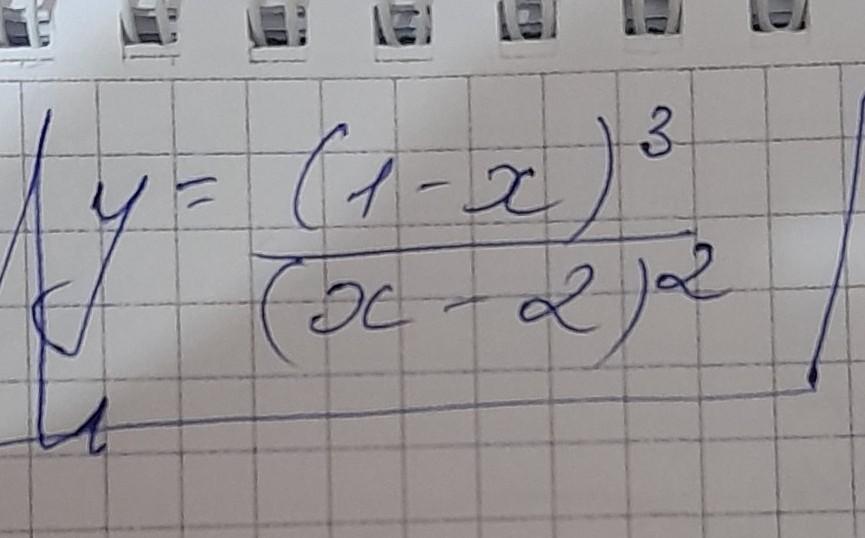 y = (1 - x)³
(x - 2)²